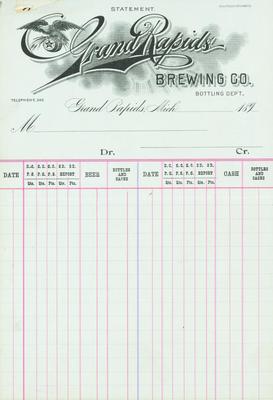 STATEMENT.
Grand Rapids
BREWING CO.
BOTTLING DEPT.
TELEPHONE, 262
Grand Rapids, Mich. 189
M
Dr. Cr.
DATE S.C. S.C. S.C. S.B. S.B. BEER BOTTLES AND CASES DATE S.C. S.C. S.C. S.B. S.B. CASH BOTTLES AND CASES
P.S. P.S. P.S. EXPORT P.S. P.S. P.S. EXPORT
Qts. Qts. Pts. Qts. Pts. Qts. Qts. Pts. Qts. Pts.